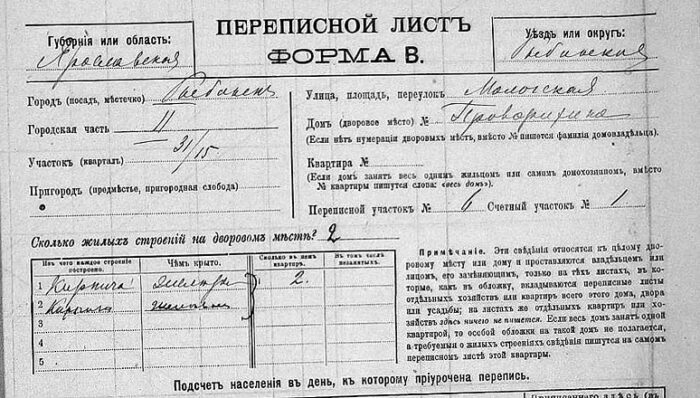 ПЕРЕПИСНОЙ ЛИСТЪ
ФОРМА В.
Губернія или область:
Ярославская
Уѣздъ или округъ:
Рыбинскій
Городъ (посадъ, мѣстечко) Рыбинскъ
Городская часть II
Участокъ (кварталъ) 31/15
Пригородъ (предмѣстье, пригородная слобода)
Улица, площадь, переулокъ Мологская
Домъ (дворовое мѣсто) №
(Если нѣтъ нумераціи дворовыхъ мѣстъ, вмѣсто № пишется фамилія домовладѣльца).
Квартира №
(Если домъ занятъ весь однимъ жильцомъ или самимъ домохозяиномъ, вмѣсто
№ квартиры пишутся слова: «весь домъ»).
Переписной участокъ № 6 Счетный участокъ № 1
Сколько жилыхъ строеній на дворовомъ мѣстѣ? 2
Изъ чего каждое строеніе построено.
Чѣмъ крыто.
Сколько въ немъ квартиръ.
Въ томъ числѣ незанятыхъ.
1 Кирпича желѣзо 2.
2
3
4
5
Примѣчаніе. Эти свѣдѣнія относятся къ цѣлому дво-
ровому мѣсту или дому и проставляются владѣльцемъ или
лицомъ, его замѣняющимъ, только на тѣхъ листахъ, въ ко-
торые, какъ въ обложку, вкладываются переписные листы
отдѣльныхъ хозяйствъ или квартиръ всего этого дома, двора
или усадьбы; на листахъ же отдѣльныхъ квартиръ или хо-
зяйствъ здѣсь ничего не пишется. Если весь домъ занятъ одной
квартирой, то особой обложки на такой домъ не полагается,
а требуемыя о жилыхъ строеніяхъ свѣдѣнія пишутся на самомъ
переписномъ листѣ этой квартиры.
Подсчетъ населенія въ день, къ которому пріурочена перепись.